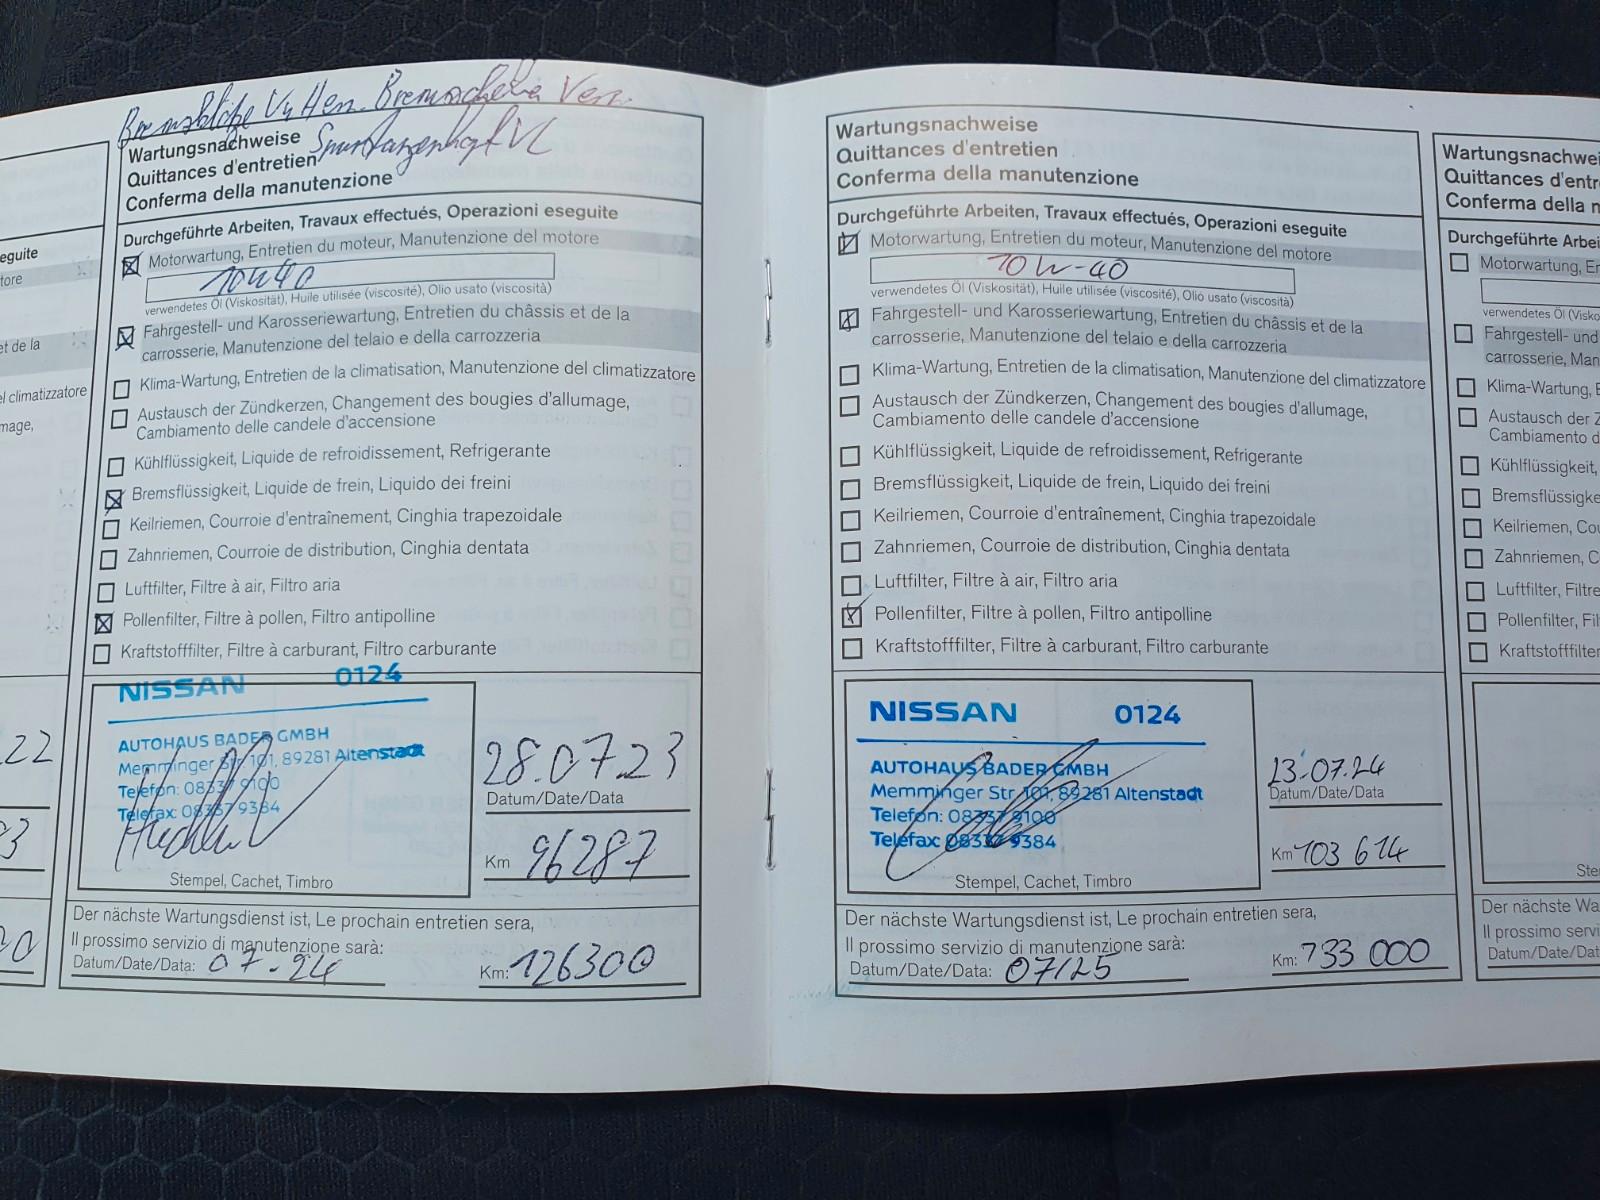 eguite
tore
et de la
el climatizzatore
mage,
22
3
00
Bremsklötze Vu Hen. Bremsscheiben Vern.
Spurstangenkopf VL
Wartungsnachweise
Quittances d'entretien
Conferma della manutenzione
Durchgeführte Arbeiten, Travaux effectués, Operazioni eseguite
Motorwartung, Entretien du moteur, Manutenzione del motore
10W40
verwendetes Öl (Viskosität), Huile utilisée (viscosité), Olio usato (viscosità)
Fahrgestell- und Karosseriewartung, Entretien du châssis et de la
carrosserie, Manutenzione del telaio e della carrozzeria
Klima-Wartung, Entretien de la climatisation, Manutenzione del climatizzatore
Austausch der Zündkerzen, Changement des bougies d'allumage,
Cambiamento delle candele d'accensione
Kühlflüssigkeit, Liquide de refroidissement, Refrigerante
Bremsflüssigkeit, Liquide de frein, Liquido dei freini
Keilriemen, Courroie d'entraînement, Cinghia trapezoidale
Zahnriemen, Courroie de distribution, Cinghia dentata
Luftfilter, Filtre à air, Filtro aria
Pollenfilter, Filtre à pollen, Filtro antipolline
Kraftstofffilter, Filtre à carburant, Filtro carburante
NISSAN 0124
AUTOHAUS BADER GMBH
Memminger Str. 101, 89281 Altenstadt
Telefon: 08337 9100
Telefax: 08337 9384
Stempel, Cachet, Timbro
28.07.23
Datum/Date/Data
Km 96287
Der nächste Wartungsdienst ist, Le prochain entretien sera,
Il prossimo servizio di manutenzione sarà:
Datum/Date/Data: 07-24 Km: 126300
Wartungsnachweise
Quittances d'entretien
Conferma della manutenzione
Durchgeführte Arbeiten, Travaux effectués, Operazioni eseguite
Motorwartung, Entretien du moteur, Manutenzione del motore
10W-40
verwendetes Öl (Viskosität), Huile utilisée (viscosité), Olio usato (viscosità)
Fahrgestell- und Karosseriewartung, Entretien du châssis et de la
carrosserie, Manutenzione del telaio e della carrozzeria
Klima-Wartung, Entretien de la climatisation, Manutenzione del climatizzatore
Austausch der Zündkerzen, Changement des bougies d'allumage,
Cambiamento delle candele d'accensione
Kühlflüssigkeit, Liquide de refroidissement, Refrigerante
Bremsflüssigkeit, Liquide de frein, Liquido dei freini
Keilriemen, Courroie d'entraînement, Cinghia trapezoidale
Zahnriemen, Courroie de distribution, Cinghia dentata
Luftfilter, Filtre à air, Filtro aria
Pollenfilter, Filtre à pollen, Filtro antipolline
Kraftstofffilter, Filtre à carburant, Filtro carburante
NISSAN 0124
AUTOHAUS BADER GMBH
Memminger Str. 101, 89281 Altenstadt
Telefon: 08337 9100
Telefax: 08337 9384
Stempel, Cachet, Timbro
23.07.24
Datum/Date/Data
Km 103 614
Der nächste Wartungsdienst ist, Le prochain entretien sera,
Il prossimo servizio di manutenzione sarà:
Datum/Date/Data: 07/25 Km: 133 000
Wartungsnachwei
Quittances d'entr
Conferma della n
Durchgeführte Arbei
Motorwartung, En
verwendetes Öl (Visko
Fahrgestell- und
carrosserie, Man
Klima-Wartung, E
Austausch der Z
Cambiamento d
Kühlflüssigkeit,
Bremsflüssigke
Keilriemen, Cou
Zahnriemen, Co
Luftfilter, Filtre
Pollenfilter, Fil
Kraftstofffilter
Ste
Der nächste Wa
Il prossimo servi
Datum/Date/Dat